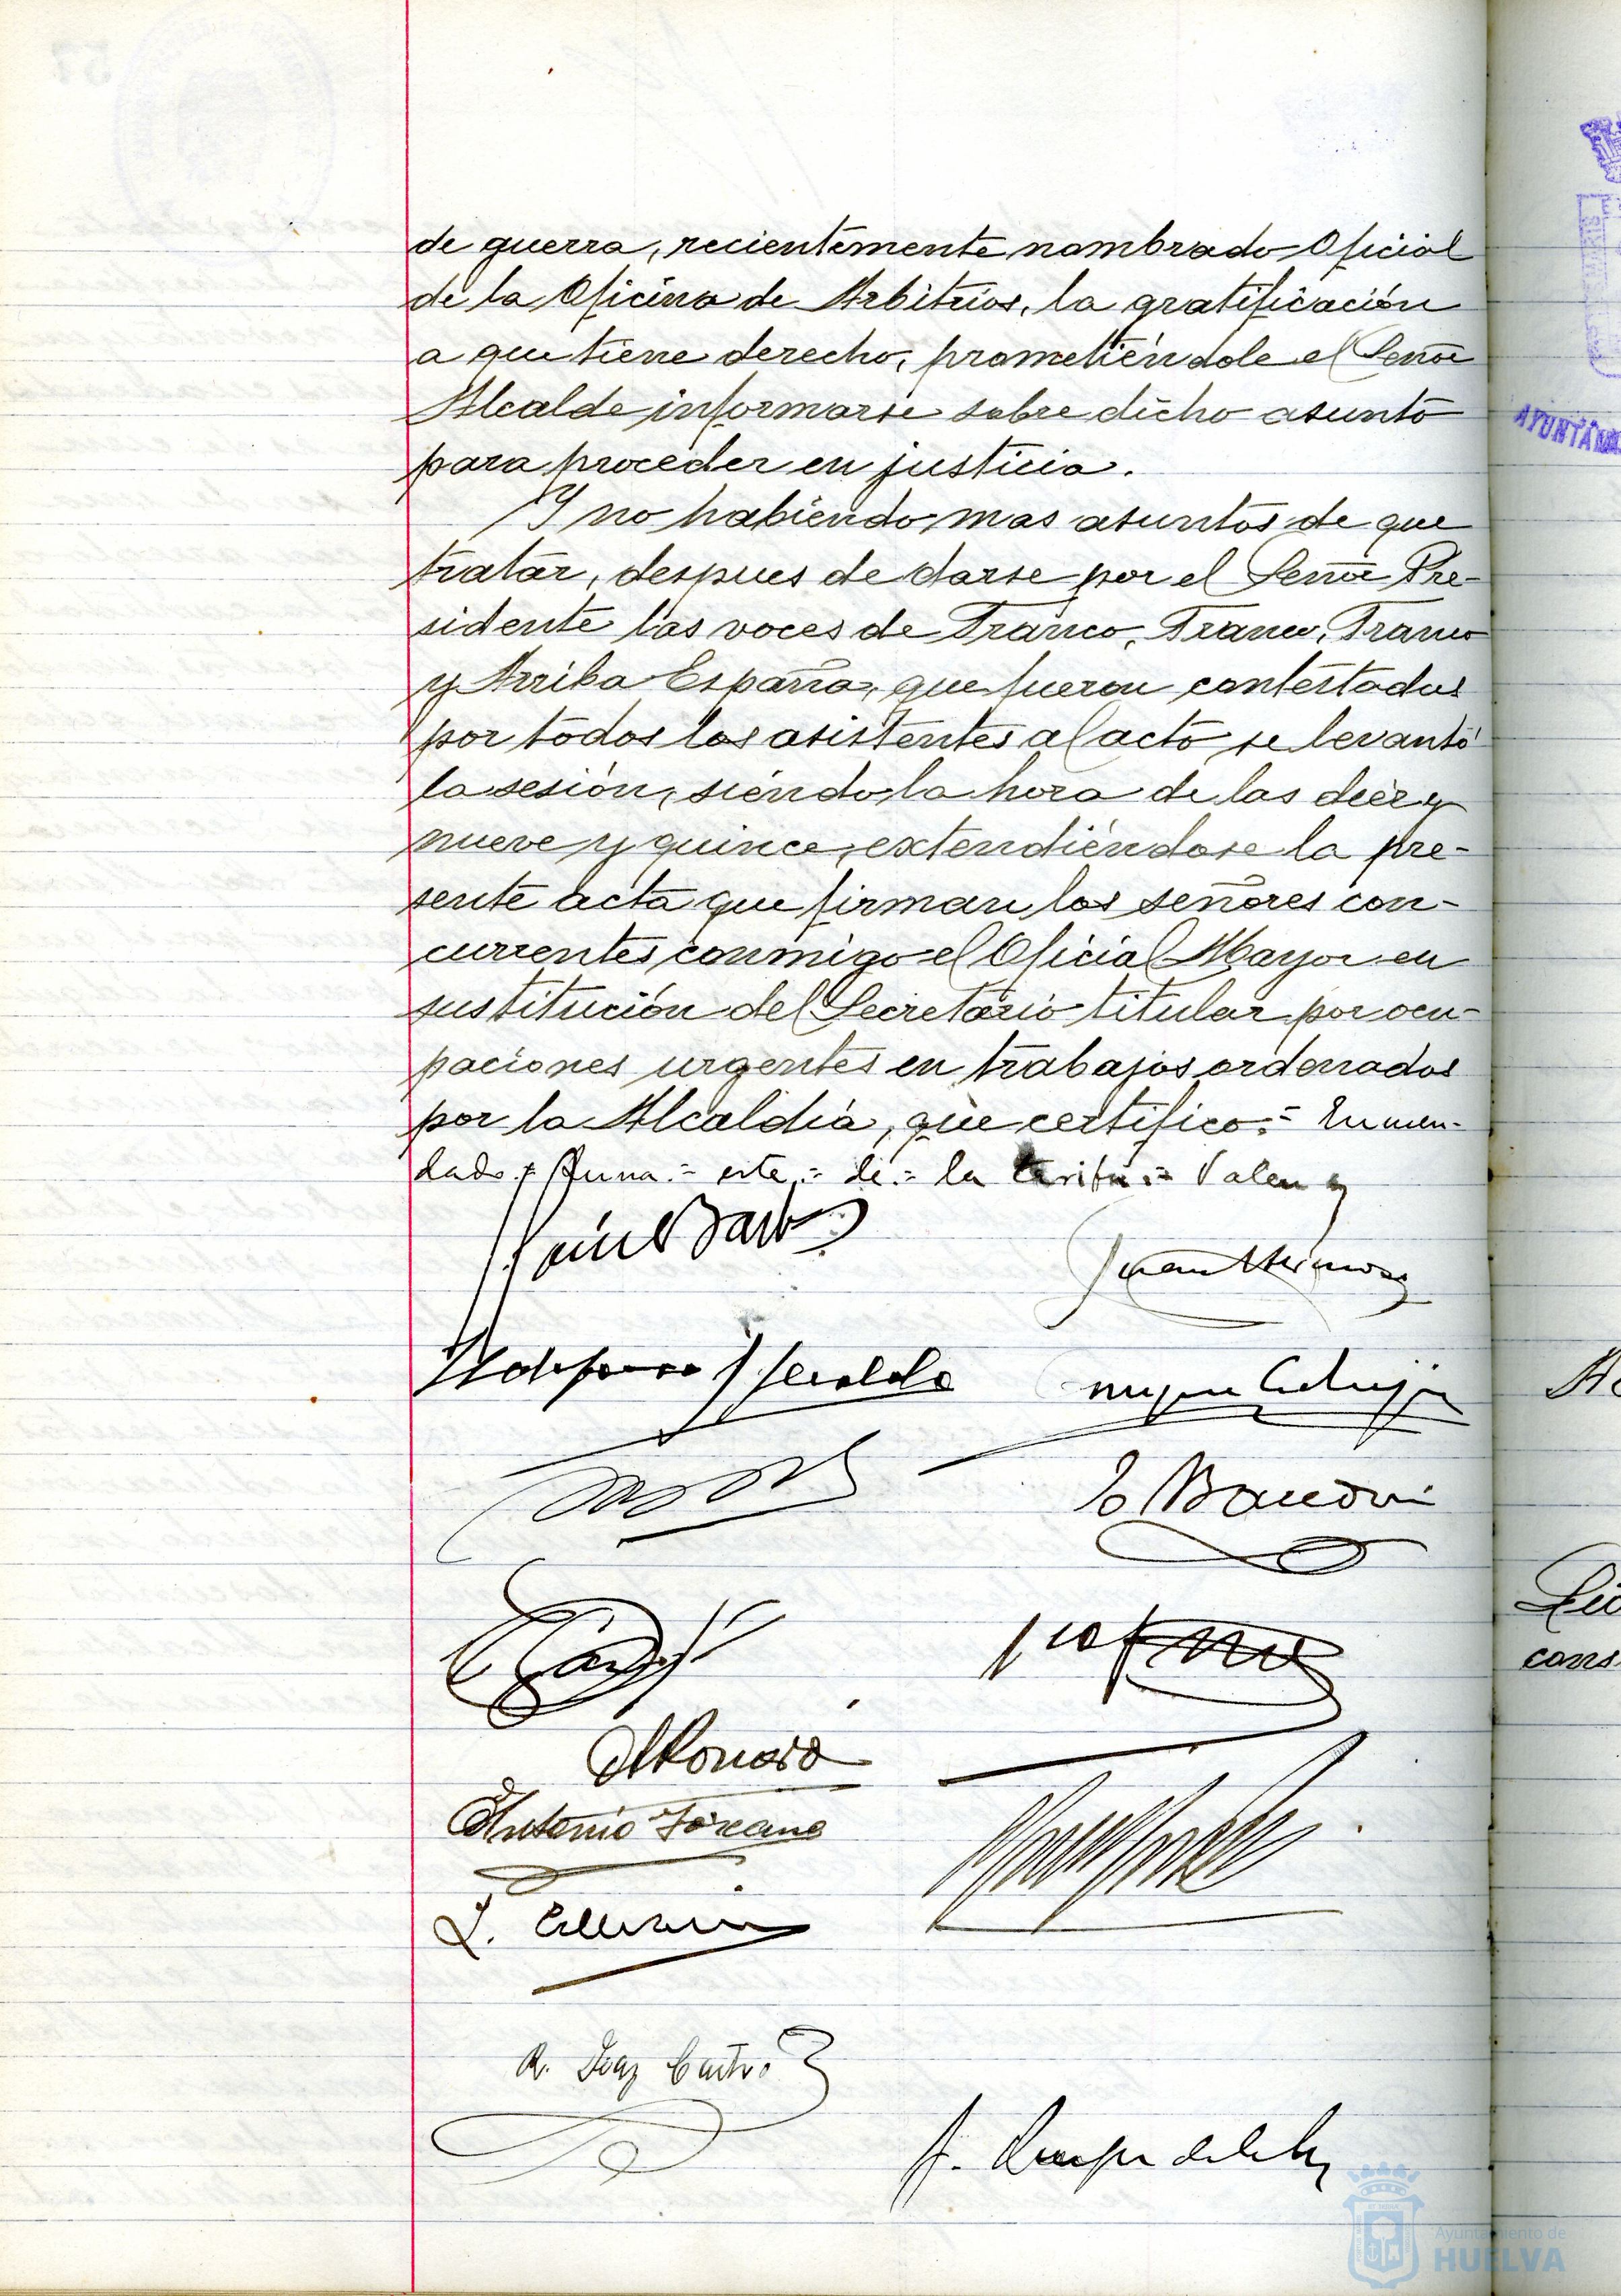 de guerra, recientemente nombrado Oficial
de la Oficina de Arbitrios, la gratificación
a que tiene derecho, prometiéndole el Señor
Alcalde informarse sobre dicho asunto
para proceder en justicia.
Y no habiendo mas asuntos de que
tratar, despues de darse por el Señor Pre-
sidente las voces de Franco, Franco, Franco
y Arriba España, que fueron contestadas
por todos los asistentes al acto se levantó
la sesión, siendo la hora de las diez y
nueve y quince, extendiéndose la pre-
sente acta que firman los señores con-
currentes conmigo el Oficial Mayor en
sustitución del Secretario titular por ocu-
paciones urgentes en trabajos ordenados
por la Alcaldía, que certifico.= Enmen-
dado: = este.= de.= la tarifa.= Valen
Antonio Toscano
R. Diaz Castro
AYUNTAM
cons
Ayuntamiento de
HUELVA